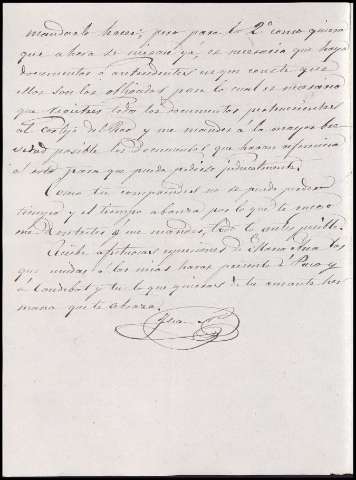 mandarlo hacer; pero para lo 2º como quiera
que ahora se niegan ya, es necesario que haya
documentos ó antecedentes en que conste que
ellos son los obligados para lo cual es necesario
que todos los documentos pertenecientes
al Cortijo del y me mandes á la mayor bre
vedad posible los documentos que hacen referencia
á esto para que pueda pedirse judicialmente.
Como tu comprendes no se puede perder
tiempo y el tiempo abanza por lo que te
me me mandes, todo lo antes posible.
Recibe afectuosas espresiones de Maria Ana las
que unidas á las mias haras presente á Paca y
á y tu lo que quieras de tu amante her
mana que te abraza